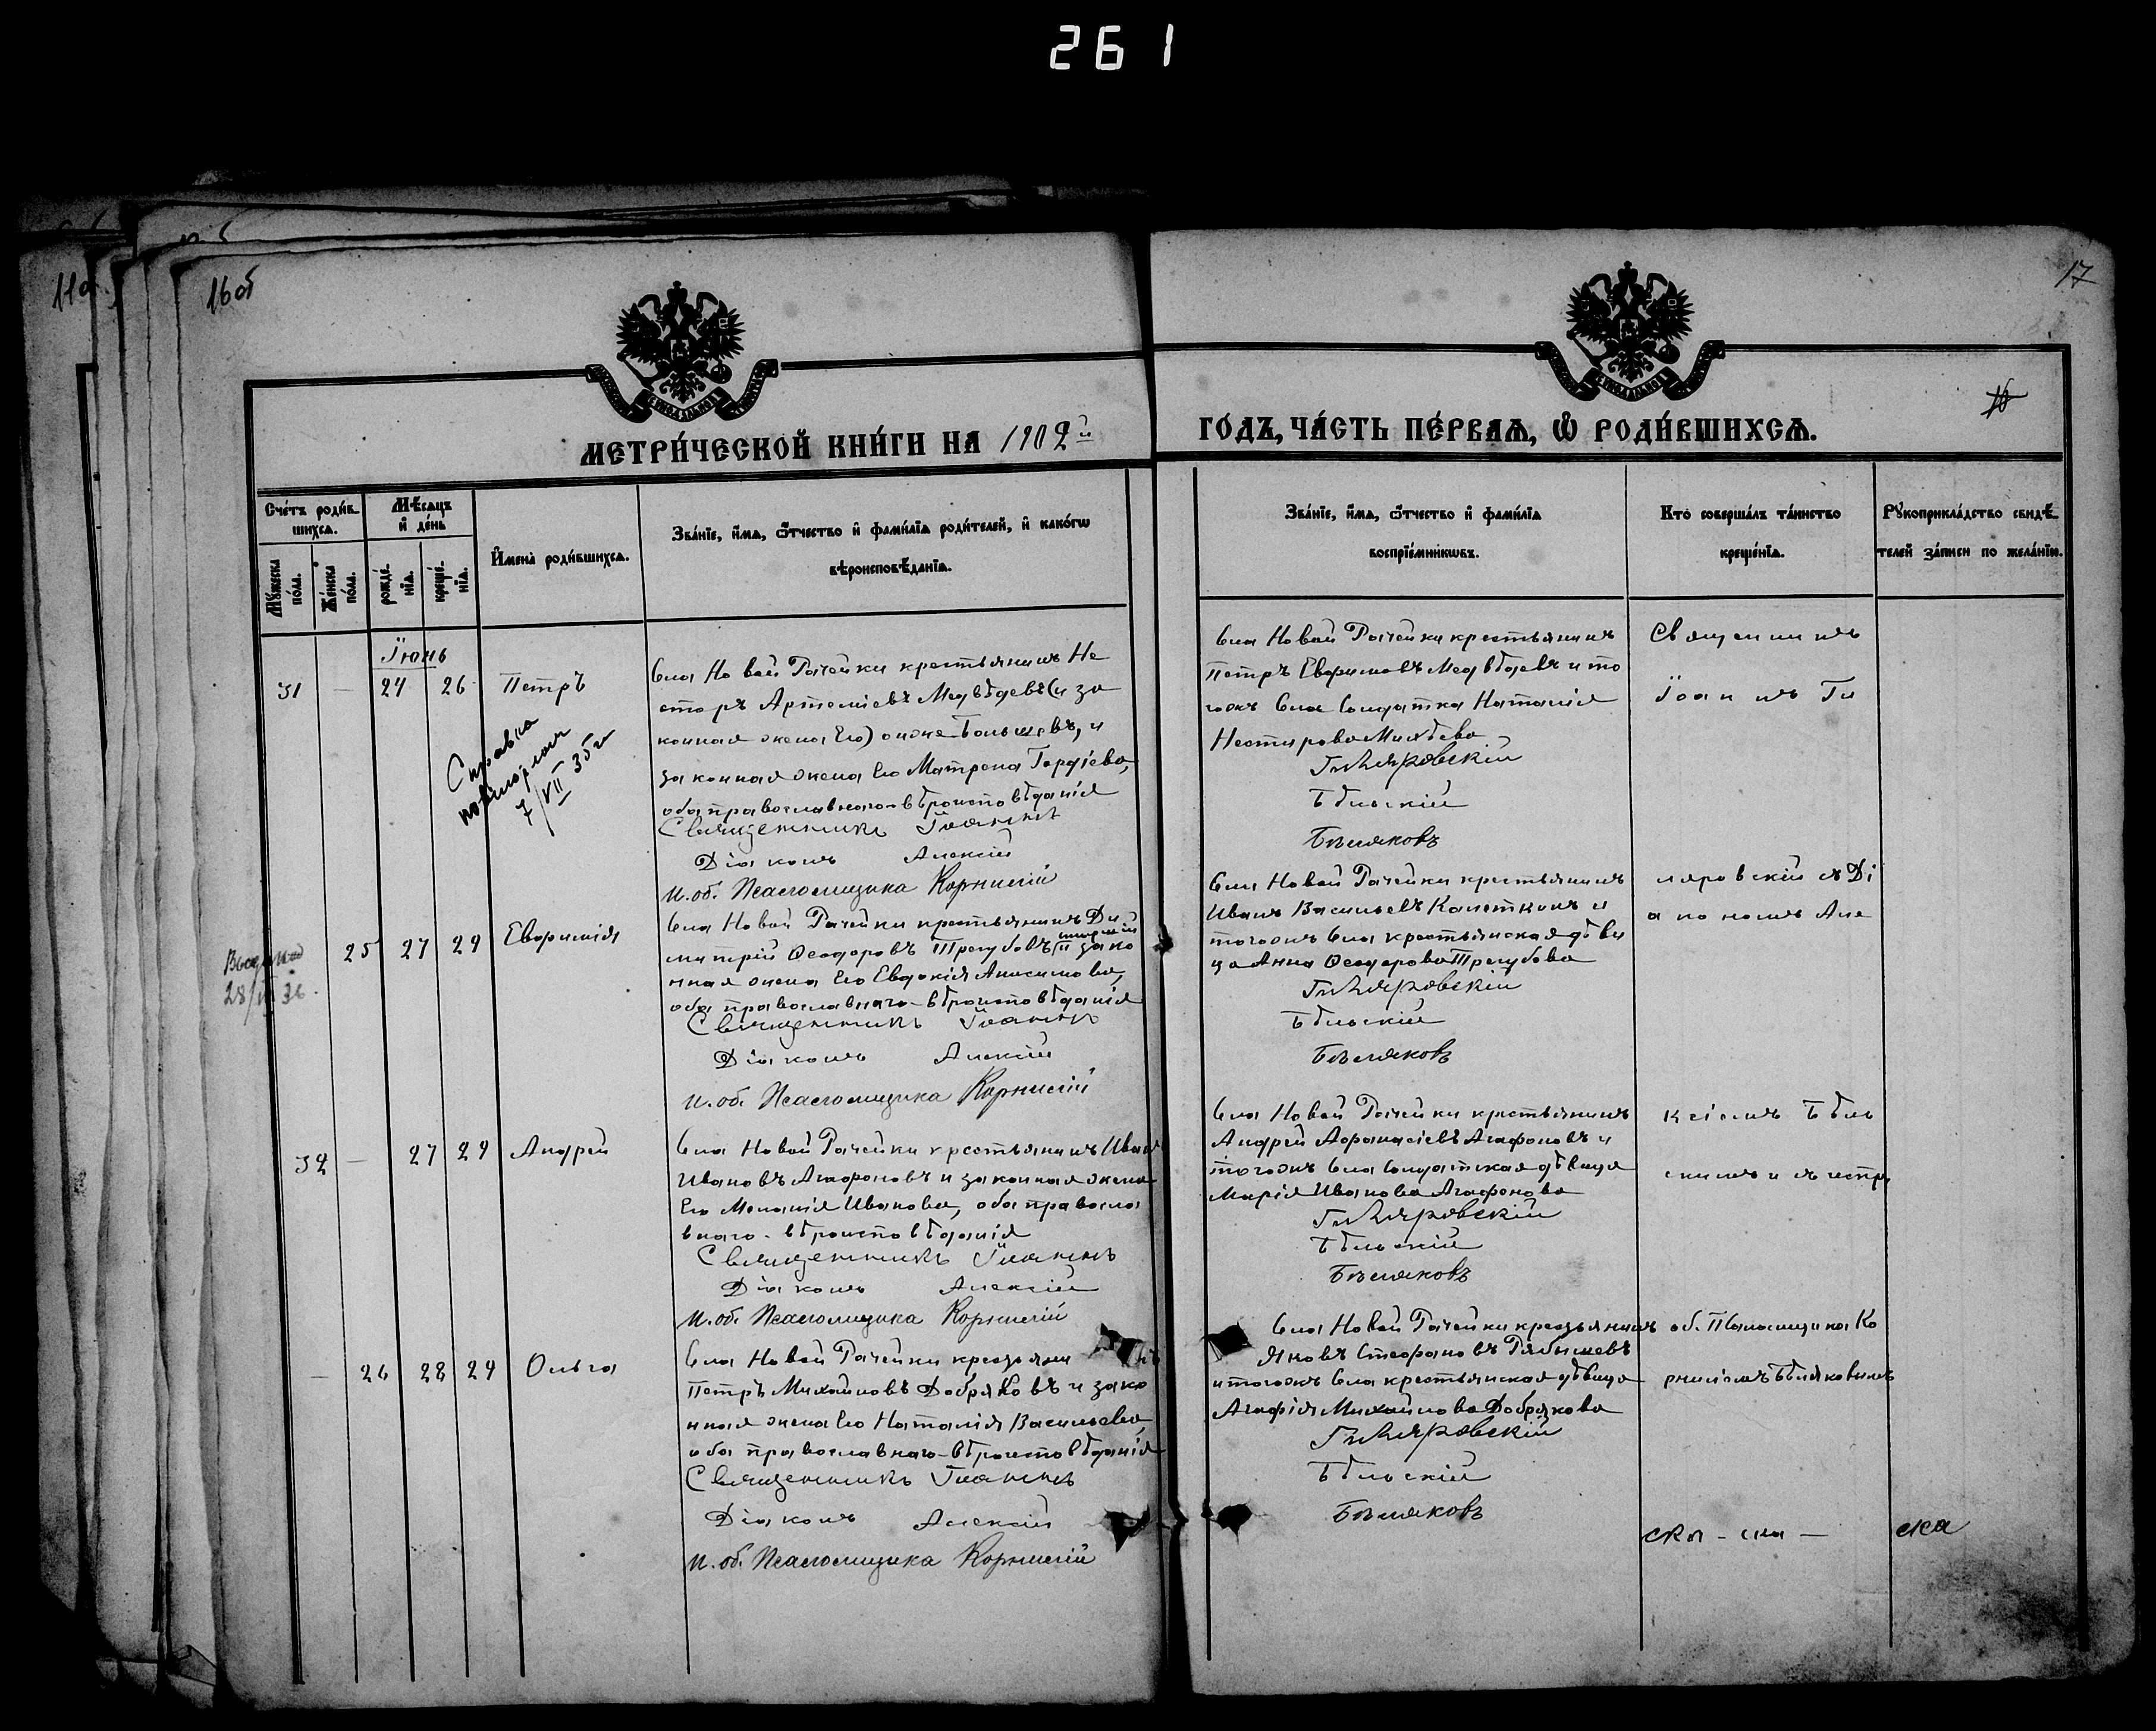 261
11об
16об
17
16
МЕТРИ́ЧЕСКОЙ КНИ́ГИ НА 1902й
ГО́ДЪ, ЧА́СТЬ ПЕ́РВАѦ, Ѡ РОДИ́ВШИХСѦ.
Сче́тъ роди́в-
шихсѧ.
Мѣ́сѧцъ
и҆ де́нь
Мꙋ́жеска
по́ла.
Же́нска
по́ла.
рожде́-
нїѧ.
креще́-
нїѧ.
И҆мена̀ роди́вшихсѧ.
Зва́нїе, и҆́мѧ, ѻ҆́тчество и҆ фами́лїѧ роди́телей, и҆ како́гѡ
вѣроисповѣ́данїѧ.
Зва́нїе, и҆́мѧ, ѻ҆́тчество и҆ фами́лїѧ
воспрїе́мникѡвъ.
Кто̀ соверша́лъ та́инство
креще́нїѧ.
Рꙋкоприкла́дство свидѣ́-
телей за́писи по жела́нїю.
Іюнь
31 — 24 26 Петръ
Справка
7/VII 35 г
Села Новой Рачейки крестьянинъ Не
сторъ Артемiевъ Медвѣдевъ (и за
конная жена Его) онже Большевъ, и
законная жена Его Матрена Гордiева,
оба православнаго-вѣроисповѣданiя
Священникъ Iоаннъ
Дiаконъ Алексiй
И. об. Псаломщика Корнилiй
Села Новой Рачейки крестьянинъ
Петръ Евфимовъ Медвѣдевъ и то
гожъ Села Солдатка Наталiя
Гиляровскiй
Бѣльскiй
Бѣляковъ
25 27 29 Евфимiя
28/ 36.
Села Новой Рачейки крестьянинъ Ди
митрiй Ѳеодоровъ Трегубовъ, и зако
нная жена Его Евдокiя Анисимова,
оба православнаго-вѣроисповѣданiя
Священникъ Iоаннъ
Дiаконъ Алексiй
И. об. Псаломщика Корнилiй
Села Новой Рачейки крестьянинъ
Иванъ Васильевъ и
тогожъ Села крестьянская дѣви
ца Анна Ѳеодорова Трегубова
Гиляровскiй
Бѣльскiй
Бѣляковъ
32 — 27 29 Андрей
Села Новой Рачейки крестьянинъ Иванъ
Ивановъ Агафоновъ и законная жена
Его Меланiя Иванова, оба правосла
внаго-вѣроисповѣданiя
Священникъ Iоаннъ
Дiаконъ Алексiй
И. об. Псаломщика Корнилiй
Села Новой Рачейки крестьянинъ
Андрей Афанасiевъ Агафоновъ и
тогожъ Села Солдатская дѣвица
Марiя Иванова Агафонова
Гиляровскiй
Бѣльскiй
Бѣляковъ
— 26 28 29 Ольга
Села Новой Рачейки крестьянинъ
Петръ Михайловъ Добряковъ и зако
нная жена Его Наталiя Васильева,
оба православнаго-вѣроисповѣданiя
Священникъ Iоаннъ
Дiаконъ Алексiй
И. об. Псаломщика Корнилiй
Села Новой Рачейки крестьянинъ
Яковъ Стефановъ Рябышевъ
и тогожъ Села крестьянская дѣвица
Агафiя Михайлова Добрякова
Гиляровскiй
Бѣльскiй
Бѣляковъ
Священникъ
Iоаннъ Ги
ляровскiй съ Дi
акономъ Але
ксiемъ Бѣль
скимъ и съ испр.
об. Псаломщика Ко
рнилiемъ Бѣляковымъ